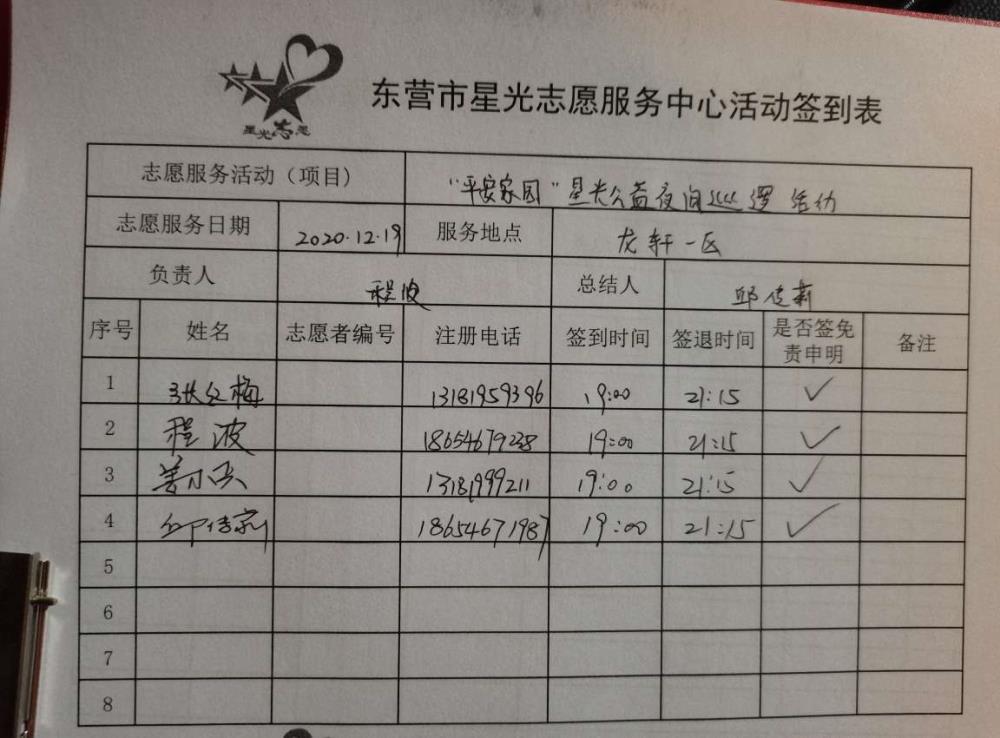 星光志愿
东营市星光志愿服务中心活动签到表
志愿服务活动（项目） “平安家园”星光公益夜间巡逻活动
志愿服务日期 2020.12.19 服务地点 龙轩一区
负责人 程波 总结人 邱传莉
序号 姓名 志愿者编号 注册电话 签到时间 签退时间 是否签免责申明 备注
1 张红梅 13181959396 19:00 21:15 ✓
2 程波 18654679238 19:00 21:15 ✓
3 姜小兵 13181999211 19:00 21:15 ✓
4 邱传莉 18654671987 19:00 21:15 ✓
5
6
7
8